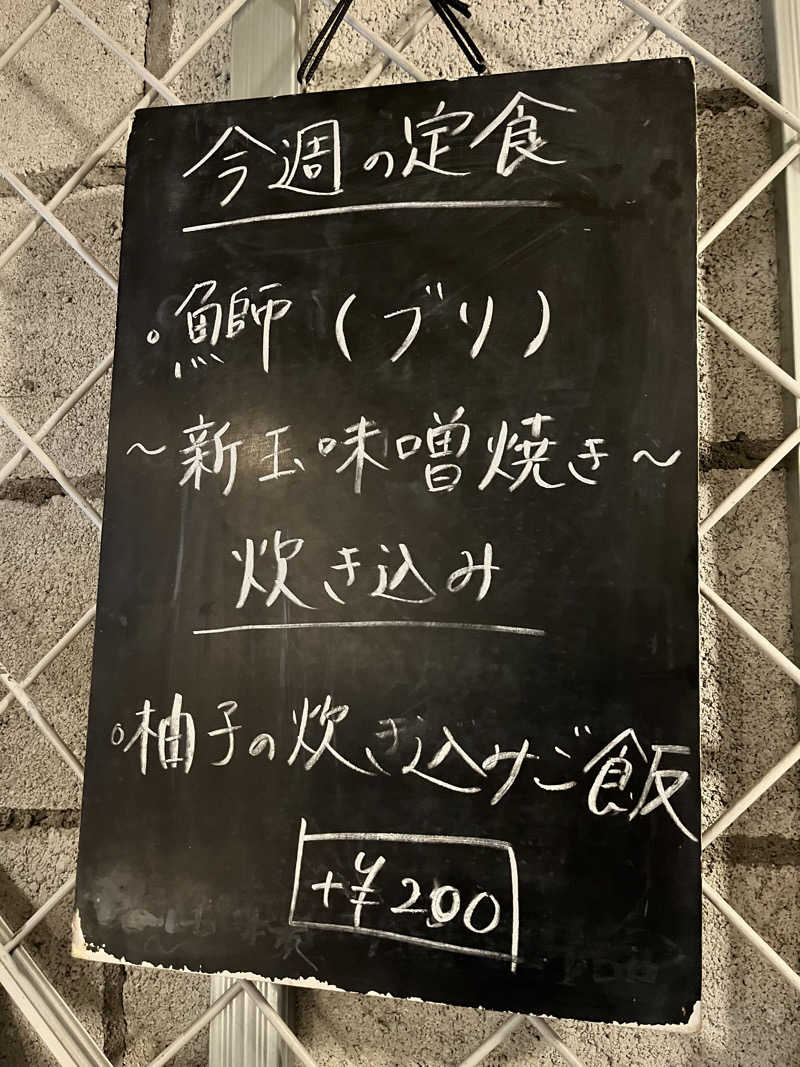 今週の定食
。鰤(ブリ)
~新玉味噌焼き~
炊き込み
。柚子の炊き込みご飯
+¥200